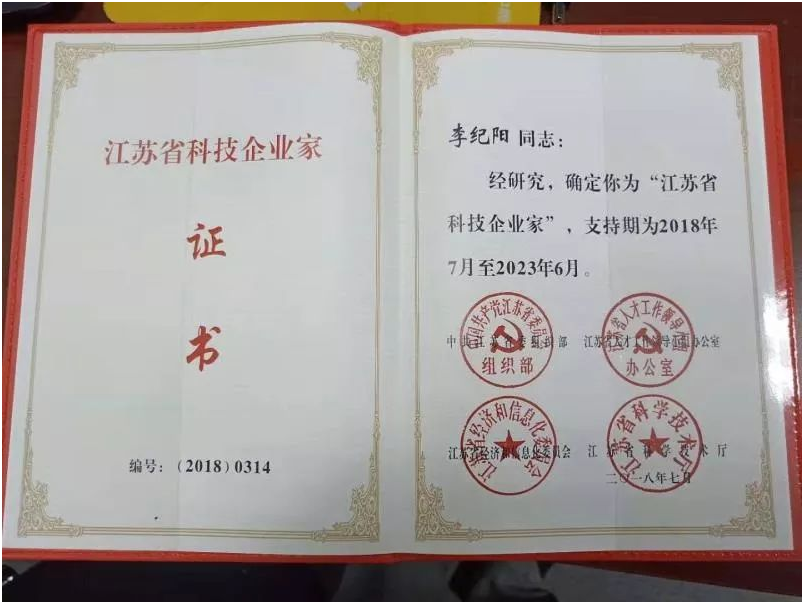 江苏省科技企业家
证
书
编号：（2018）0314
李纪阳 同志：
经研究，确定你为“江苏省
科技企业家”，支持期为2018年
7月至2023年6月。
中国共产党江苏省委员会
组织部
中共江苏省委组织部
江苏省人才工作领导小组
办公室
江苏省人才工作领导小组办公室
江苏省经济和信息化委员会
江苏省经济和信息化委员会
江苏省科学技术厅
江苏省科学技术厅
二〇一八年七月